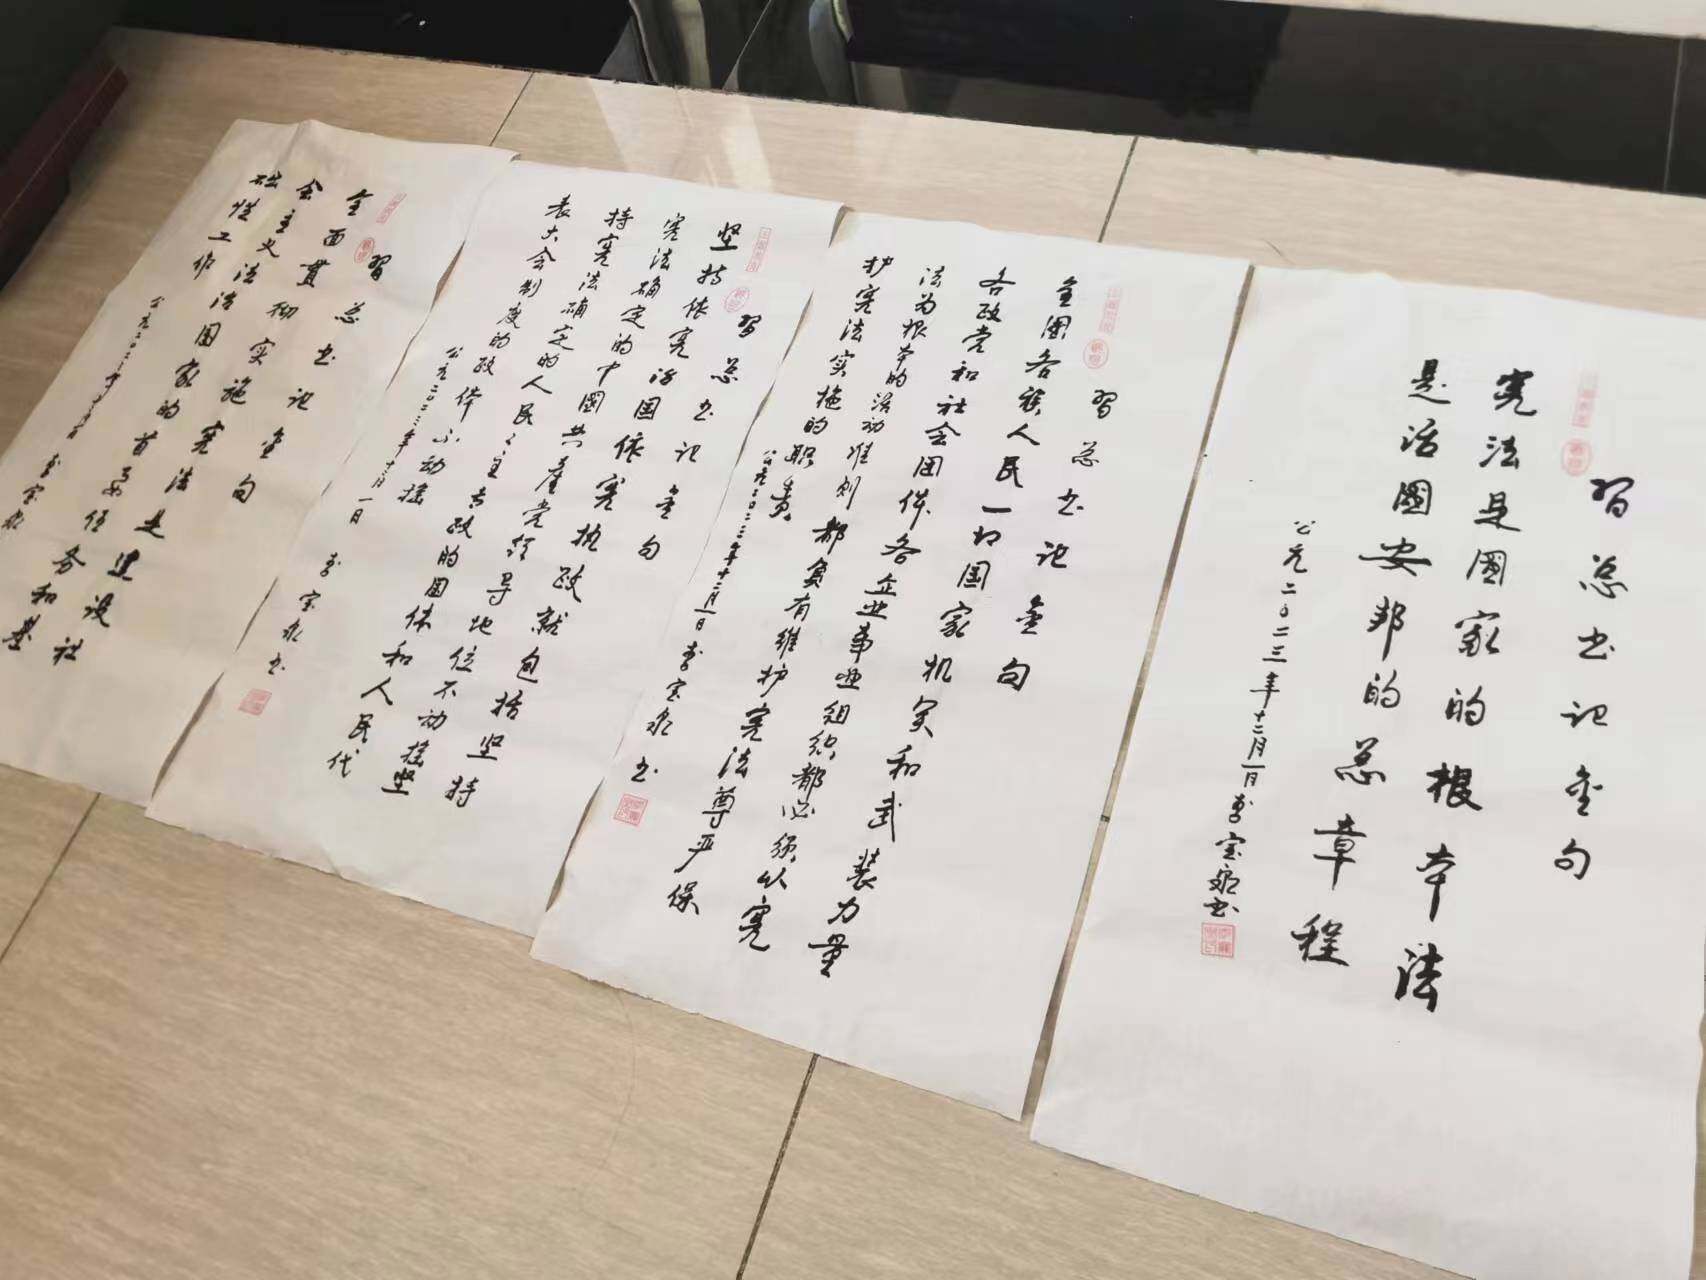 习总书记金句
宪法是国家的根本法
是治国安邦的总章程
公元二〇二三年十二月一日 李宝泉书
习总书记金句
全国各族人民一切国家机关和武装力量
各政党和社会团体各企业事业组织都必须以宪
法为根本的活动准则都负有维护宪法尊严保
护宪法实施的职责
公元二〇二三年十二月一日 李宝泉书
习总书记金句
坚持依宪治国依宪执政就包括坚持
宪法确定的中国共产党领导地位不动摇坚
持宪法确定的人民民主专政的国体和人民代
表大会制度的政体不动摇
公元二〇二三年十二月一日 李宝泉书
习总书记金句
全面贯彻实施宪法是建设社
会主义法治国家的首要任务和基
础性工作
李宝泉